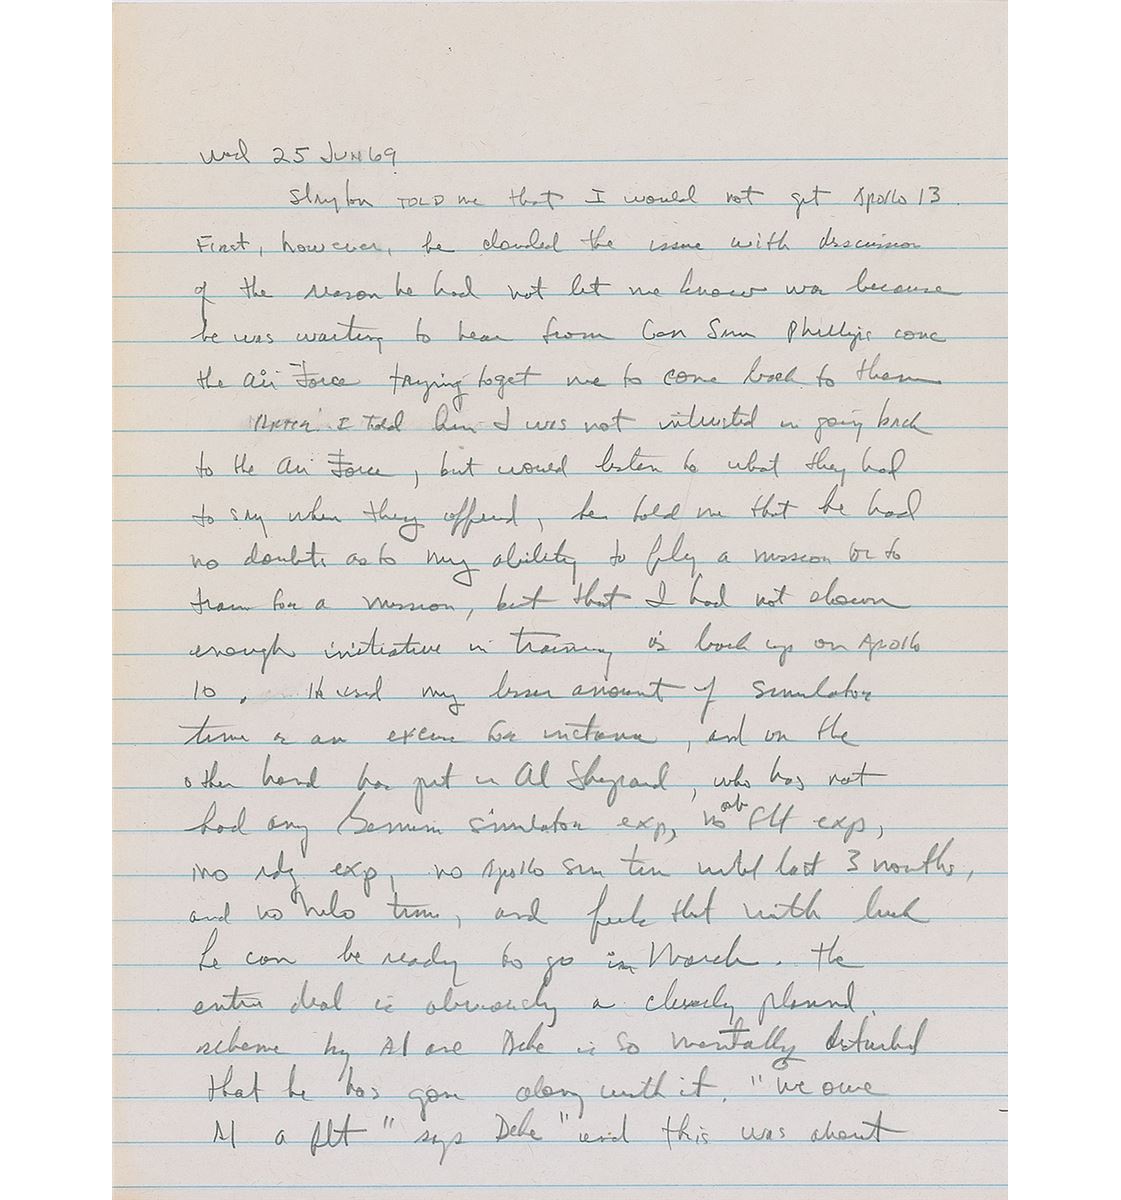 Wed 25 JUN 69
Slayton TOLD me that I would not get Apollo 13.
First, however, he clouded the issue with discussion
of the reason he had not let me know was because
he was waiting to hear from Gen Sam Phillips conc
the Air Force trying to get me to come back to them
After I told him I was not interested in going back
to the Air Force, but would listen to what they had
to say when they offered, he told me that he had
no doubts as to my ability to fly a mission or to
train for a mission, but that I had not shown
enough initiative in training as back up on Apollo
10. He used my lesser amount of simulator
time as an excuse for instance, and on the
other hand has put in Al Shepard, who has not
had any Gemini simulator exp, no orb flt exp,
no rdz exp, no Apollo sim time until last 3 months,
and no helo time, and feels that with luck
he can be ready to go in March. The
entire deal is obviously a cleverly planned
scheme by Al and Deke is so mentally disturbed
that he has gone along with it. "We owe
Al a flt" says Deke "and this was about